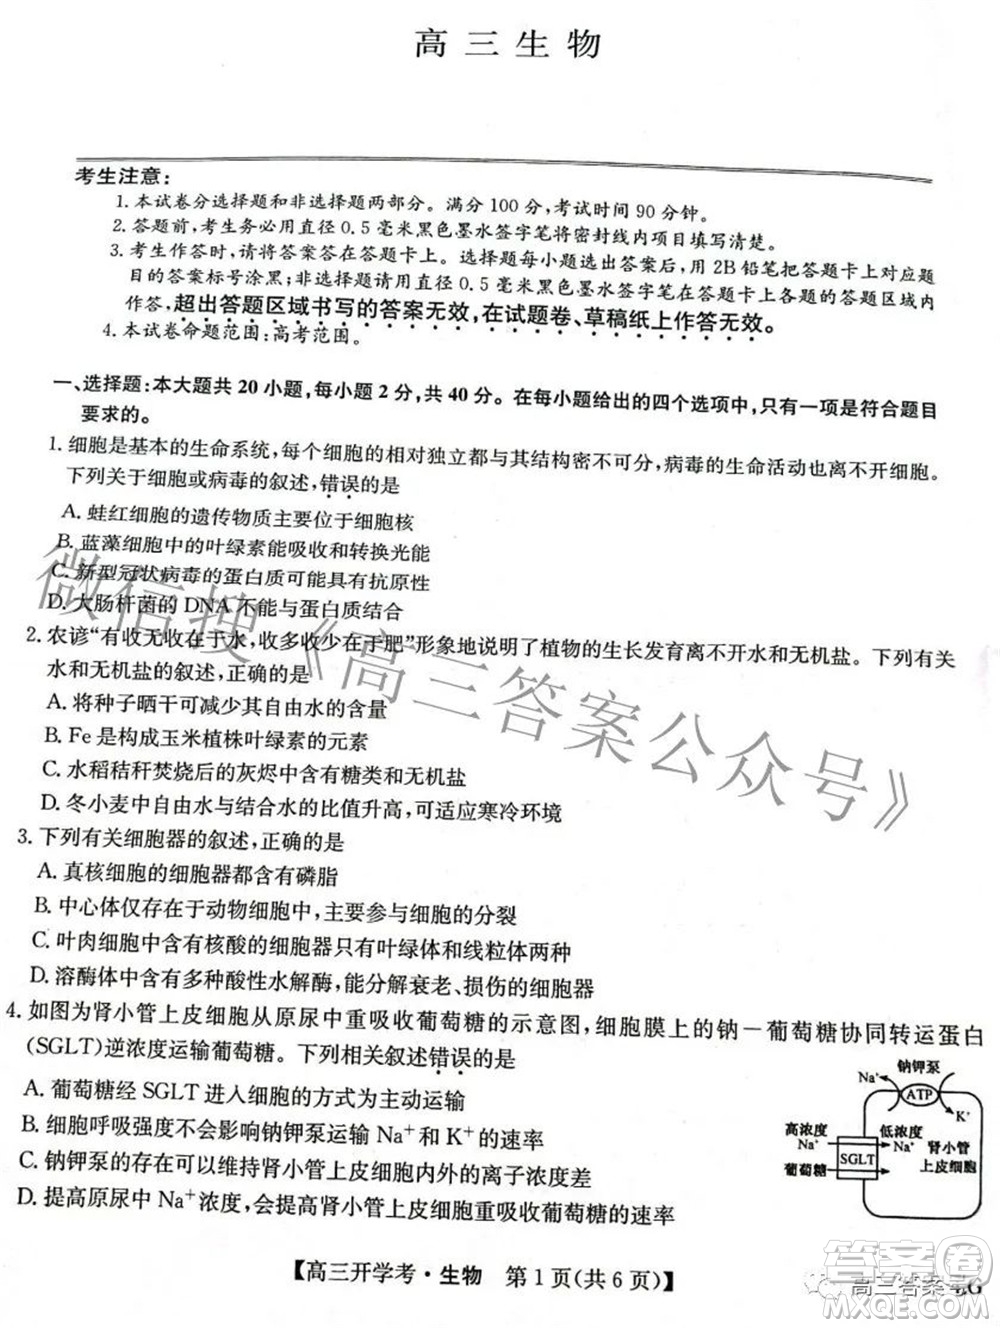 高三生物
考生注意:
1. 本试卷分选择题和非选择题两部分。满分100分,考试时间90分钟。
2. 答题前,考生务必用直径0.5毫米黑色墨水签字笔将密封线内项目填写清楚。
3. 考生作答时,请将答案答在答题卡上。选择题每小题选出答案后,用2B铅笔把答题卡上对应题
目的答案标号涂黑;非选择题请用直径0.5毫米黑色墨水签字笔在答题卡上各题的答题区域内
作答,超出答题区域书写的答案无效,在试题卷、草稿纸上作答无效。
4. 本试卷命题范围:高考范围。
一、选择题:本大题共20小题,每小题2分,共40分。在每小题给出的四个选项中,只有一项是符合题目
要求的。
1. 细胞是基本的生命系统,每个细胞的相对独立都与其结构密不可分,病毒的生命活动也离不开细胞。
下列关于细胞或病毒的叙述,错误的是
A. 蛙红细胞的遗传物质主要位于细胞核
B. 蓝藻细胞中的叶绿素能吸收和转换光能
C. 新型冠状病毒的蛋白质可能具有抗原性
D. 大肠杆菌的DNA不能与蛋白质结合
2. 农谚“有收无收在于水,收多收少在于肥”形象地说明了植物的生长发育离不开水和无机盐。下列有关
水和无机盐的叙述,正确的是
A. 将种子晒干可减少其自由水的含量
B. Fe是构成玉米植株叶绿素的元素
C. 水稻秸秆焚烧后的灰烬中含有糖类和无机盐
D. 冬小麦中自由水与结合水的比值升高,可适应寒冷环境
3. 下列有关细胞器的叙述,正确的是
A. 真核细胞的细胞器都含有磷脂
B. 中心体仅存在于动物细胞中,主要参与细胞的分裂
C. 叶肉细胞中含有核酸的细胞器只有叶绿体和线粒体两种
D. 溶酶体中含有多种酸性水解酶,能分解衰老、损伤的细胞器
4. 如图为肾小管上皮细胞从原尿中重吸收葡萄糖的示意图,细胞膜上的钠-葡萄糖协同转运蛋白
(SGLT)逆浓度运输葡萄糖。下列相关叙述错误的是
A. 葡萄糖经SGLT进入细胞的方式为主动运输
B. 细胞呼吸强度不会影响钠钾泵运输Na⁺和K⁺的速率
C. 钠钾泵的存在可以维持肾小管上皮细胞内外的离子浓度差
D. 提高原尿中Na⁺浓度,会提高肾小管上皮细胞重吸收葡萄糖的速率
钠钾泵
Na⁺
ATP
K⁺
高浓度
Na⁺
低浓度
Na⁺
肾小管
上皮细胞
SGLT
葡萄糖
【高三开学考·生物 第1页(共6页)】
G
微信搜《高三答案公众号》
高三答案号
答案圈
MXQE.COM